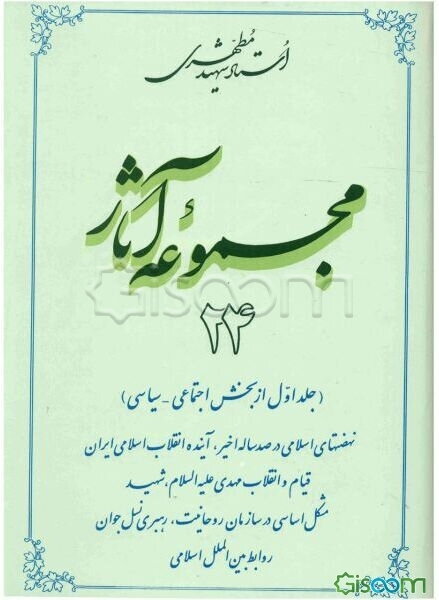 استاد شهید مطهری
مجموعهٔ آثار
۲۴
(جلد اوّل از بخش اجتماعی - سیاسی)
نهضتهای اسلامی در صد ساله اخیر، آینده انقلاب اسلامی ایران
قیام و انقلاب مهدی علیه السلام، شهید
مشکل اساسی در سازمان روحانیت، رهبری نسل جوان
روابط بین الملل اسلامی
Gisoom
Gisoom.com